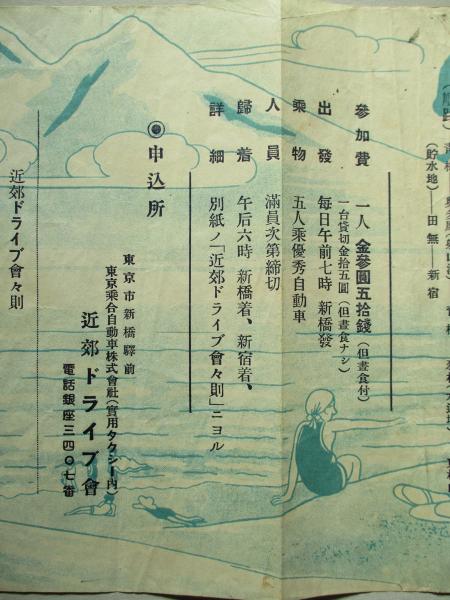 (貯水地)──田無──新宿
參加費　一人 金參圓五拾錢(但晝食付)
一台貸切金拾五圓(但晝食ナシ)
出發　每日午前七時 新橋發
乘物　五人乘優秀自動車
人員　滿員次第締切
歸着　午后六時 新橋着、新宿着、
詳細　別紙ノ「近郊ドライブ會々則」ニヨル
◉申込所
東京市新橋驛前
東京乘合自動車株式會社(實用タクシー內)
近郊ドライブ會
電話銀座三四〇七番
近郊ドライブ會々則